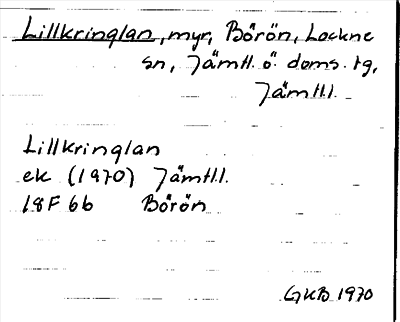 Lillkringlan, myr, Börön, Lockne
sn, Jämtl. ö. doms. tg,
Jämtl.l.
Lillkringlan
ek (1970) Jämtl.l.
18F 6b Börön
GKB 1970